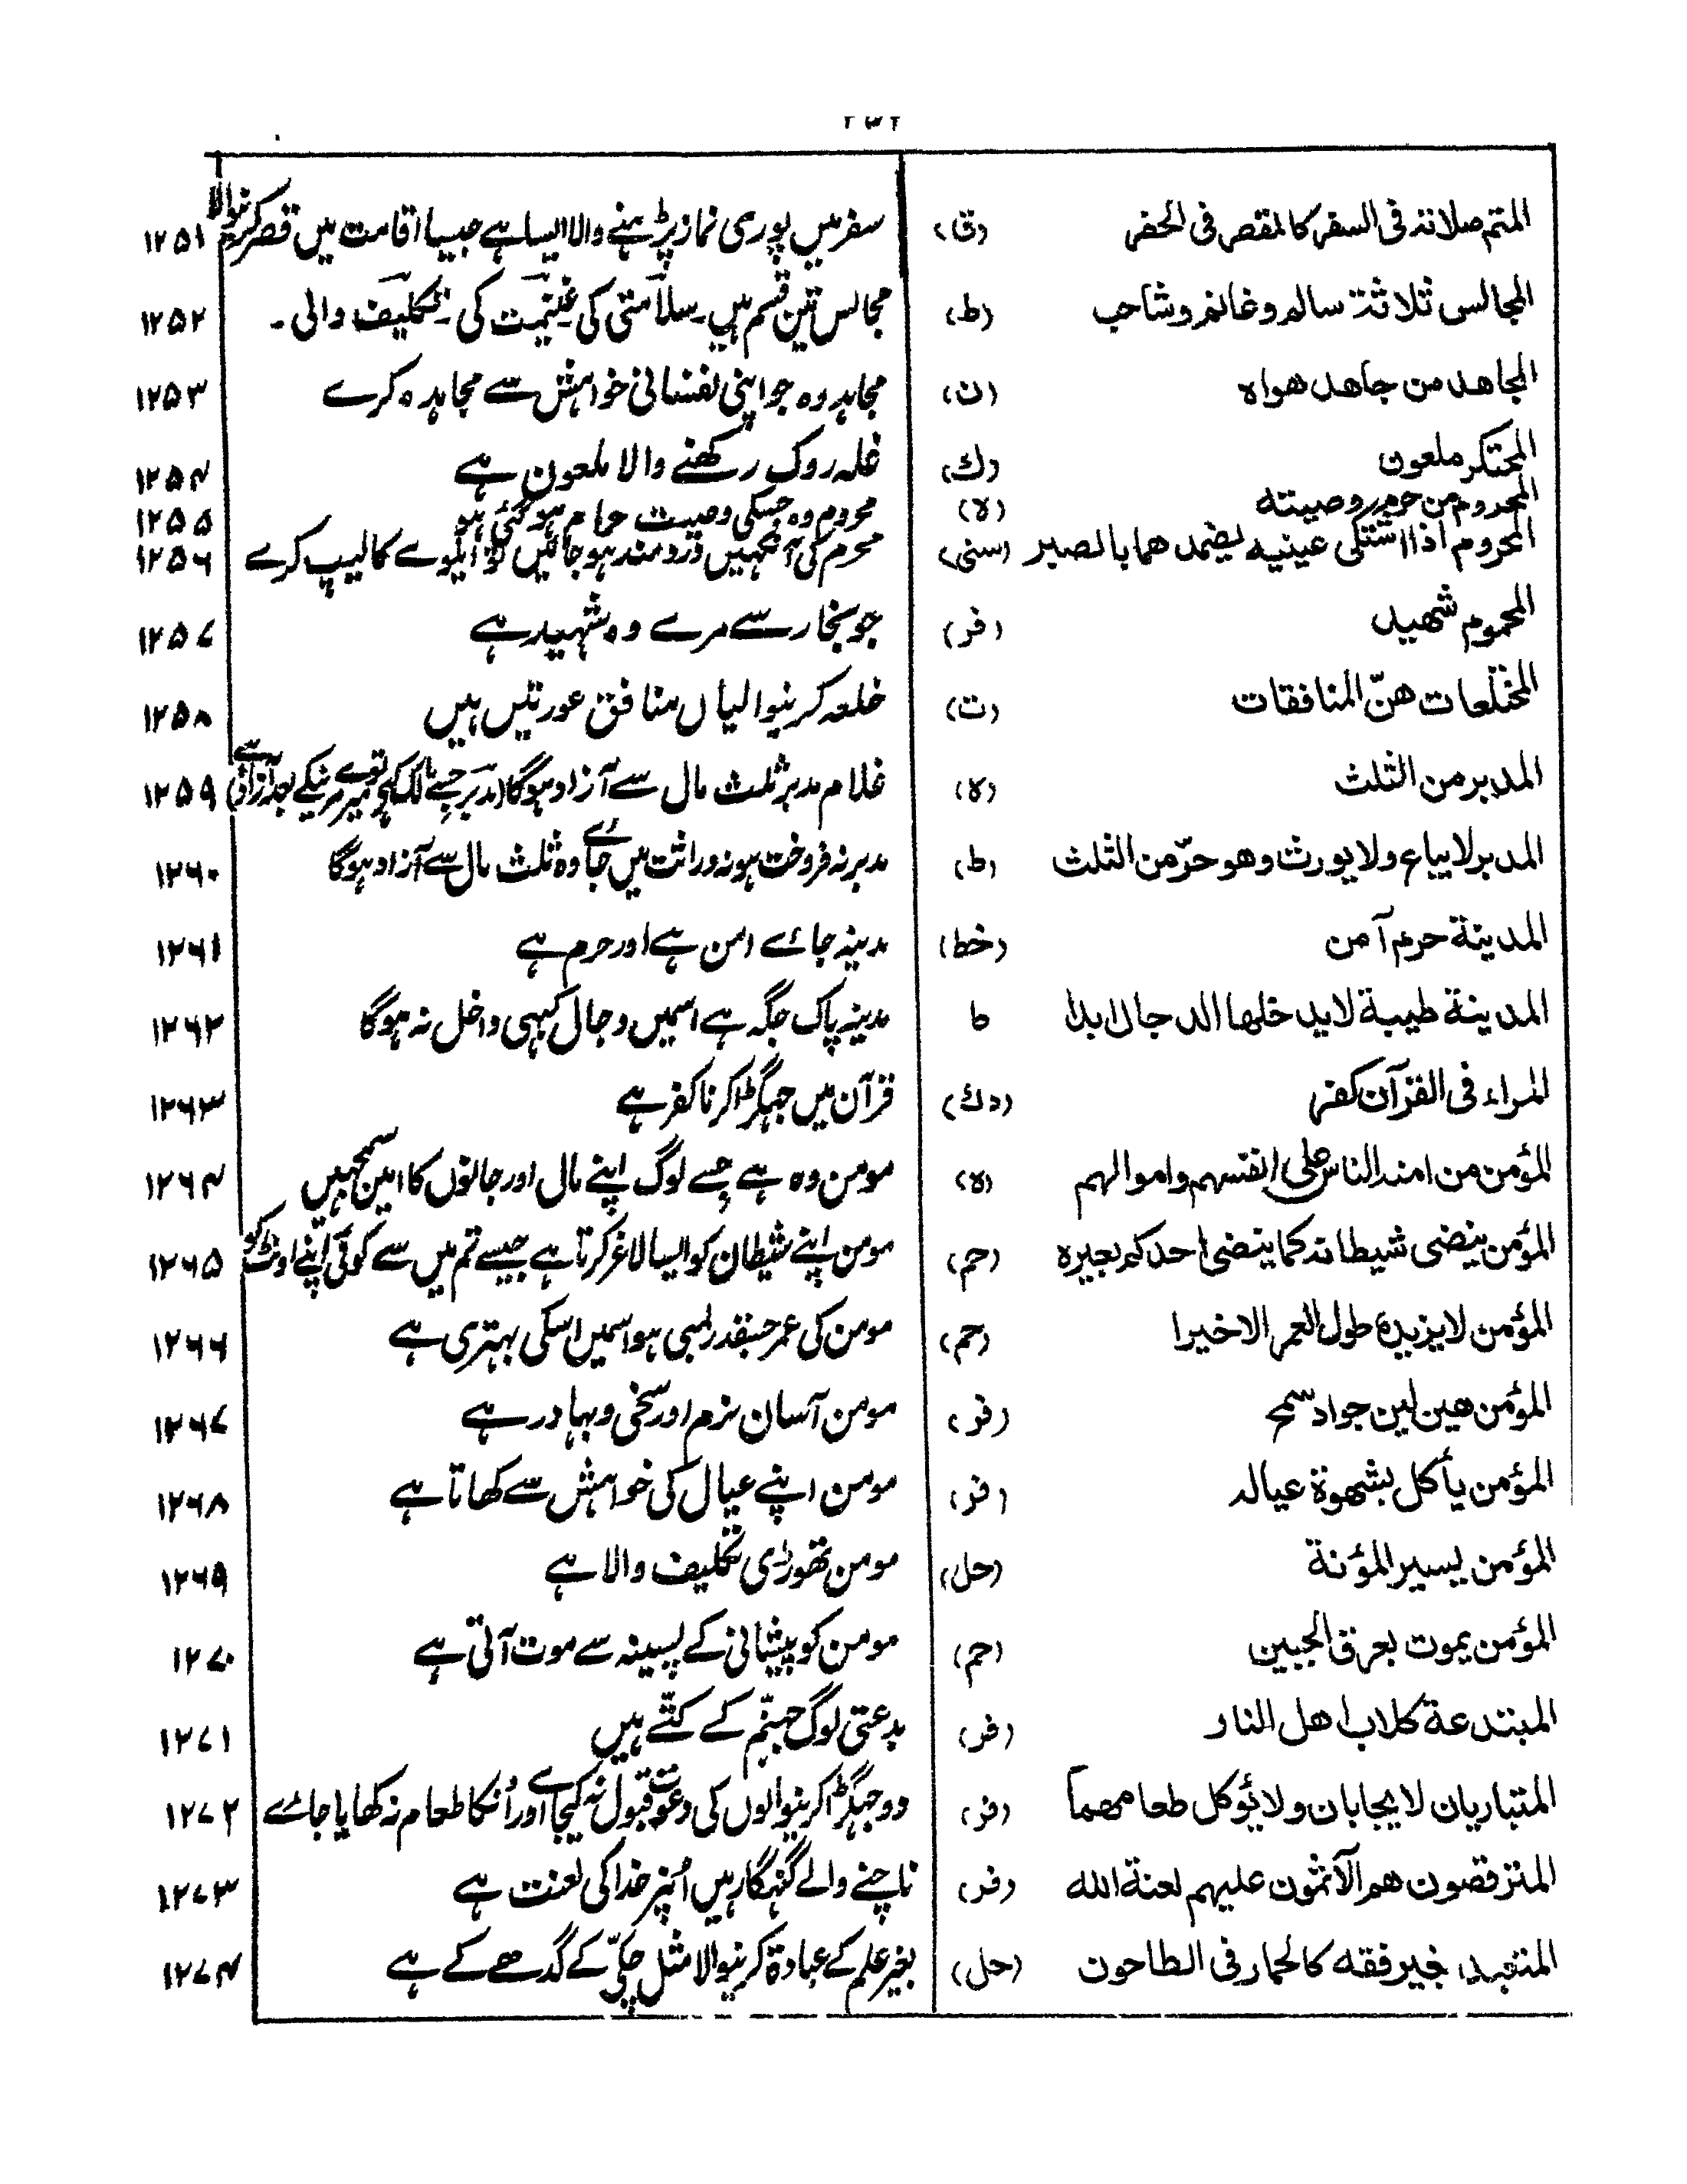 ۲۳۲
المتم صلاتہ فی السفر کالمقصر فی الحضر (ق) سفر میں پوری نماز پڑہنے والا ایسا ہے جیسا اقامت میں قصر کرنیوالا ۱۲۵۱
المجالس ثلاثۃ سالم وغانم وشاحب (ط) مجالس تین قسم ہیں۔ سلامتی کی۔ غنیمت کی۔ تکلیف والی۔ ۱۲۵۲
المجاھد من جاھد ھواہ (ن) مجاہد وہ جو اپنی نفسانی خواہش سے مجاہدہ کرے ۱۲۵۳
المحتکر ملعون (ك) غلہ روک رکھنے والا ملعون ہے ۱۲۵۴
المحروم من حرم وصیتہ (لا) محروم وہ جسکی وصیت حرام ہو گئی ہو ۱۲۵۵
المحروم اذا اشتکی عینیہ یضمد ھما بالصبر (سنی) محرم کی آنکہیں دردمند ہو جائیں تو ایلوے کا لیپ کرے ۱۲۵۶
المحموم شھید (فر) جو بخار سے مرے وہ شہید ہے ۱۲۵۷
المختلعات ھنّ المنافقات (ت) خلعہ کرنیوالیاں منافق عورتیں ہیں ۱۲۵۸
المدبر من الثلث (لا) غلام مدبر ثلث مال سے آزاد ہوگا (مدبر جسے مالک کہے تو میرے مرنیکے بعد آزاد ہے) ۱۲۵۹
المدبر لا یباع ولا یورث وھو حرّ من الثلث (ط) مدبر نہ فروخت ہو نہ وراثت میں جاے وہ ثلث مال سے آزاد ہوگا ۱۲۶۰
المدینۃ حرم آمن (خط) مدینہ جاے امن ہے اور حرم ہے ۱۲۶۱
المدینۃ طیبۃ لا یدخلھا الدجال ابدا ط مدینہ پاک جگہ ہے اسمیں دجال کبہی داخل نہ ہوگا ۱۲۶۲
المراء فی القرآن کفر (دك) قرآن میں جہگڑا کرنا کفر ہے ۱۲۶۳
المؤمن من امنہ الناس علی انفسہم واموالہم (لا) مومن وہ ہے جسے لوگ اپنے مالی اور جانوں کا امین سمجہیں ۱۲۶۴
المؤمن ینضی شیطانہ کما ینضی احدکم بعیرہ (حم) مومن اپنے شیطان کو ایسا لاغر کرتا ہے جیسے تم میں سے کوئی اپنے اونٹ کو ۱۲۶۵
المؤمن لا یزیدہ طول العمر الا خیرا (حم) مومن کی عمر جسقدر لمبی ہو اسمیں اسکی بہتری ہے ۱۲۶۶
المؤمن ھین لین جواد سمح (فر) مومن آسان نرم اور سخی و بہادر ہے ۱۲۶۷
المؤمن یأکل بشھوۃ عیالہ (فر) مومن اپنے عیال کی خواہش سے کھاتا ہے ۱۲۶۸
المؤمن یسیر المؤنۃ (حل) مومن تھوڑی تکلیف والا ہے ۱۲۶۹
المؤمن یموت بعرق الجبین (حم) مومن کو پیشانی کے پسینہ سے موت آتی ہے ۱۲۷۰
المبتدعۃ کلاب اھل النار (فر) بدعتی لوگ جہنّم کے کتّے ہیں ۱۲۷۱
المتباریان لا یجابان ولا یؤکل طعامھما (فر) دو جہگڑا کرنیوالوں کی دعوت قبول نہ کیجاے اور اُنکا طعام نہ کھایا جاے ۱۲۷۲
المترقصون ھم الآثمون علیہم لعنۃ اللہ (فر) ناچنے والے گنہگار ہیں اُنپر خدا کی لعنت ہے ۱۲۷۳
المتعبد بغیر فقہ کالحمار فی الطاحون (حل) بغیر علم کے عبادۃ کرنیوالا مثل چکّی کے گدھے کے ہے ۱۲۷۴